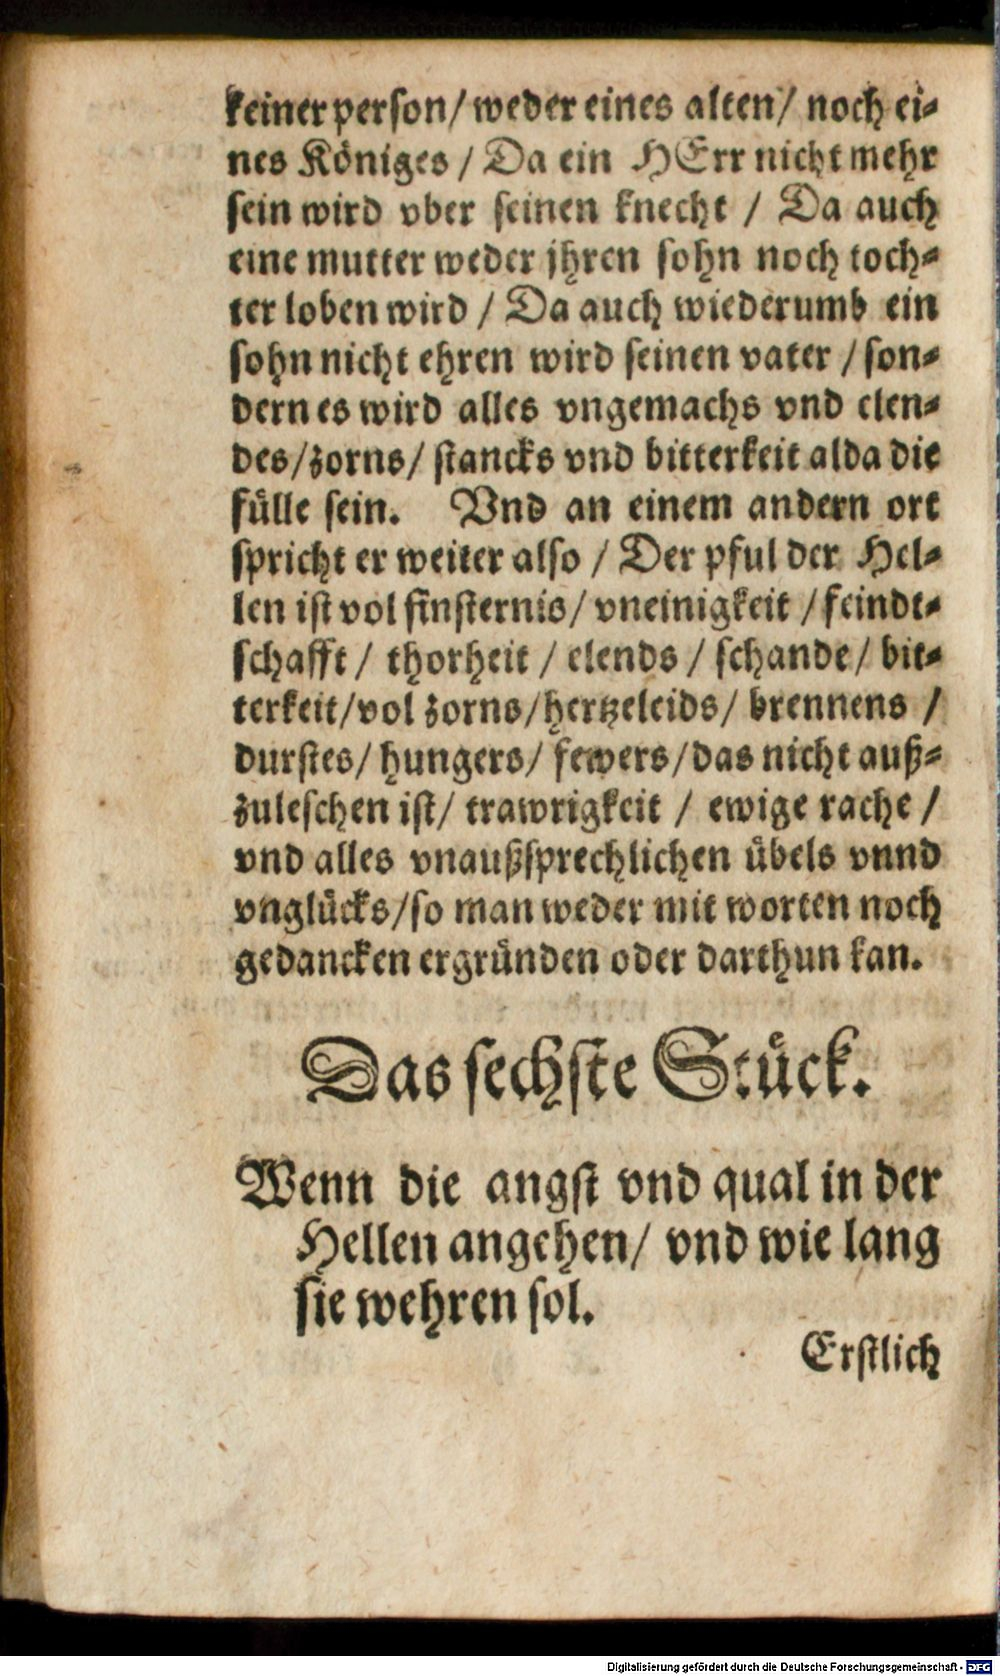 keiner person/ weder eines alten/ noch ei-
nes Königes / Da ein HErr nicht mehr
sein wird vber seinen knecht / Da auch
eine mutter weder jhren sohn noch toch-
ter loben wird / Da auch wiederumb ein
sohn nicht ehren wird seinen vater / son-
dern es wird alles vngemachs vnd elen-
des/zorns/ stancks vnd bitterkeit alda die
fülle sein. Vnd an einem andern ort
spricht er weiter also / Der pful der Hel-
len ist vol finsternis/ vneinigkeit / feindt-
schafft / thorheit / elends / schande/ bit-
terkeit/vol zorns/hertzeleids/ brennens /
durstes/ hungers/ fewers/das nicht auß-
zuleschen ist/ trawrigkeit / ewige rache /
vnd alles vnaußsprechlichen übels vnnd
vnglücks/so man weder mit worten noch
gedancken ergründen oder darthun kan.
Das sechste Stück.
Wenn die angst vnd qual in der
Hellen angehen/ vnd wie lang
sie wehren sol.
Erstlich
Digitalisierung gefördert durch die Deutsche Forschungsgemeinschaft - DFG